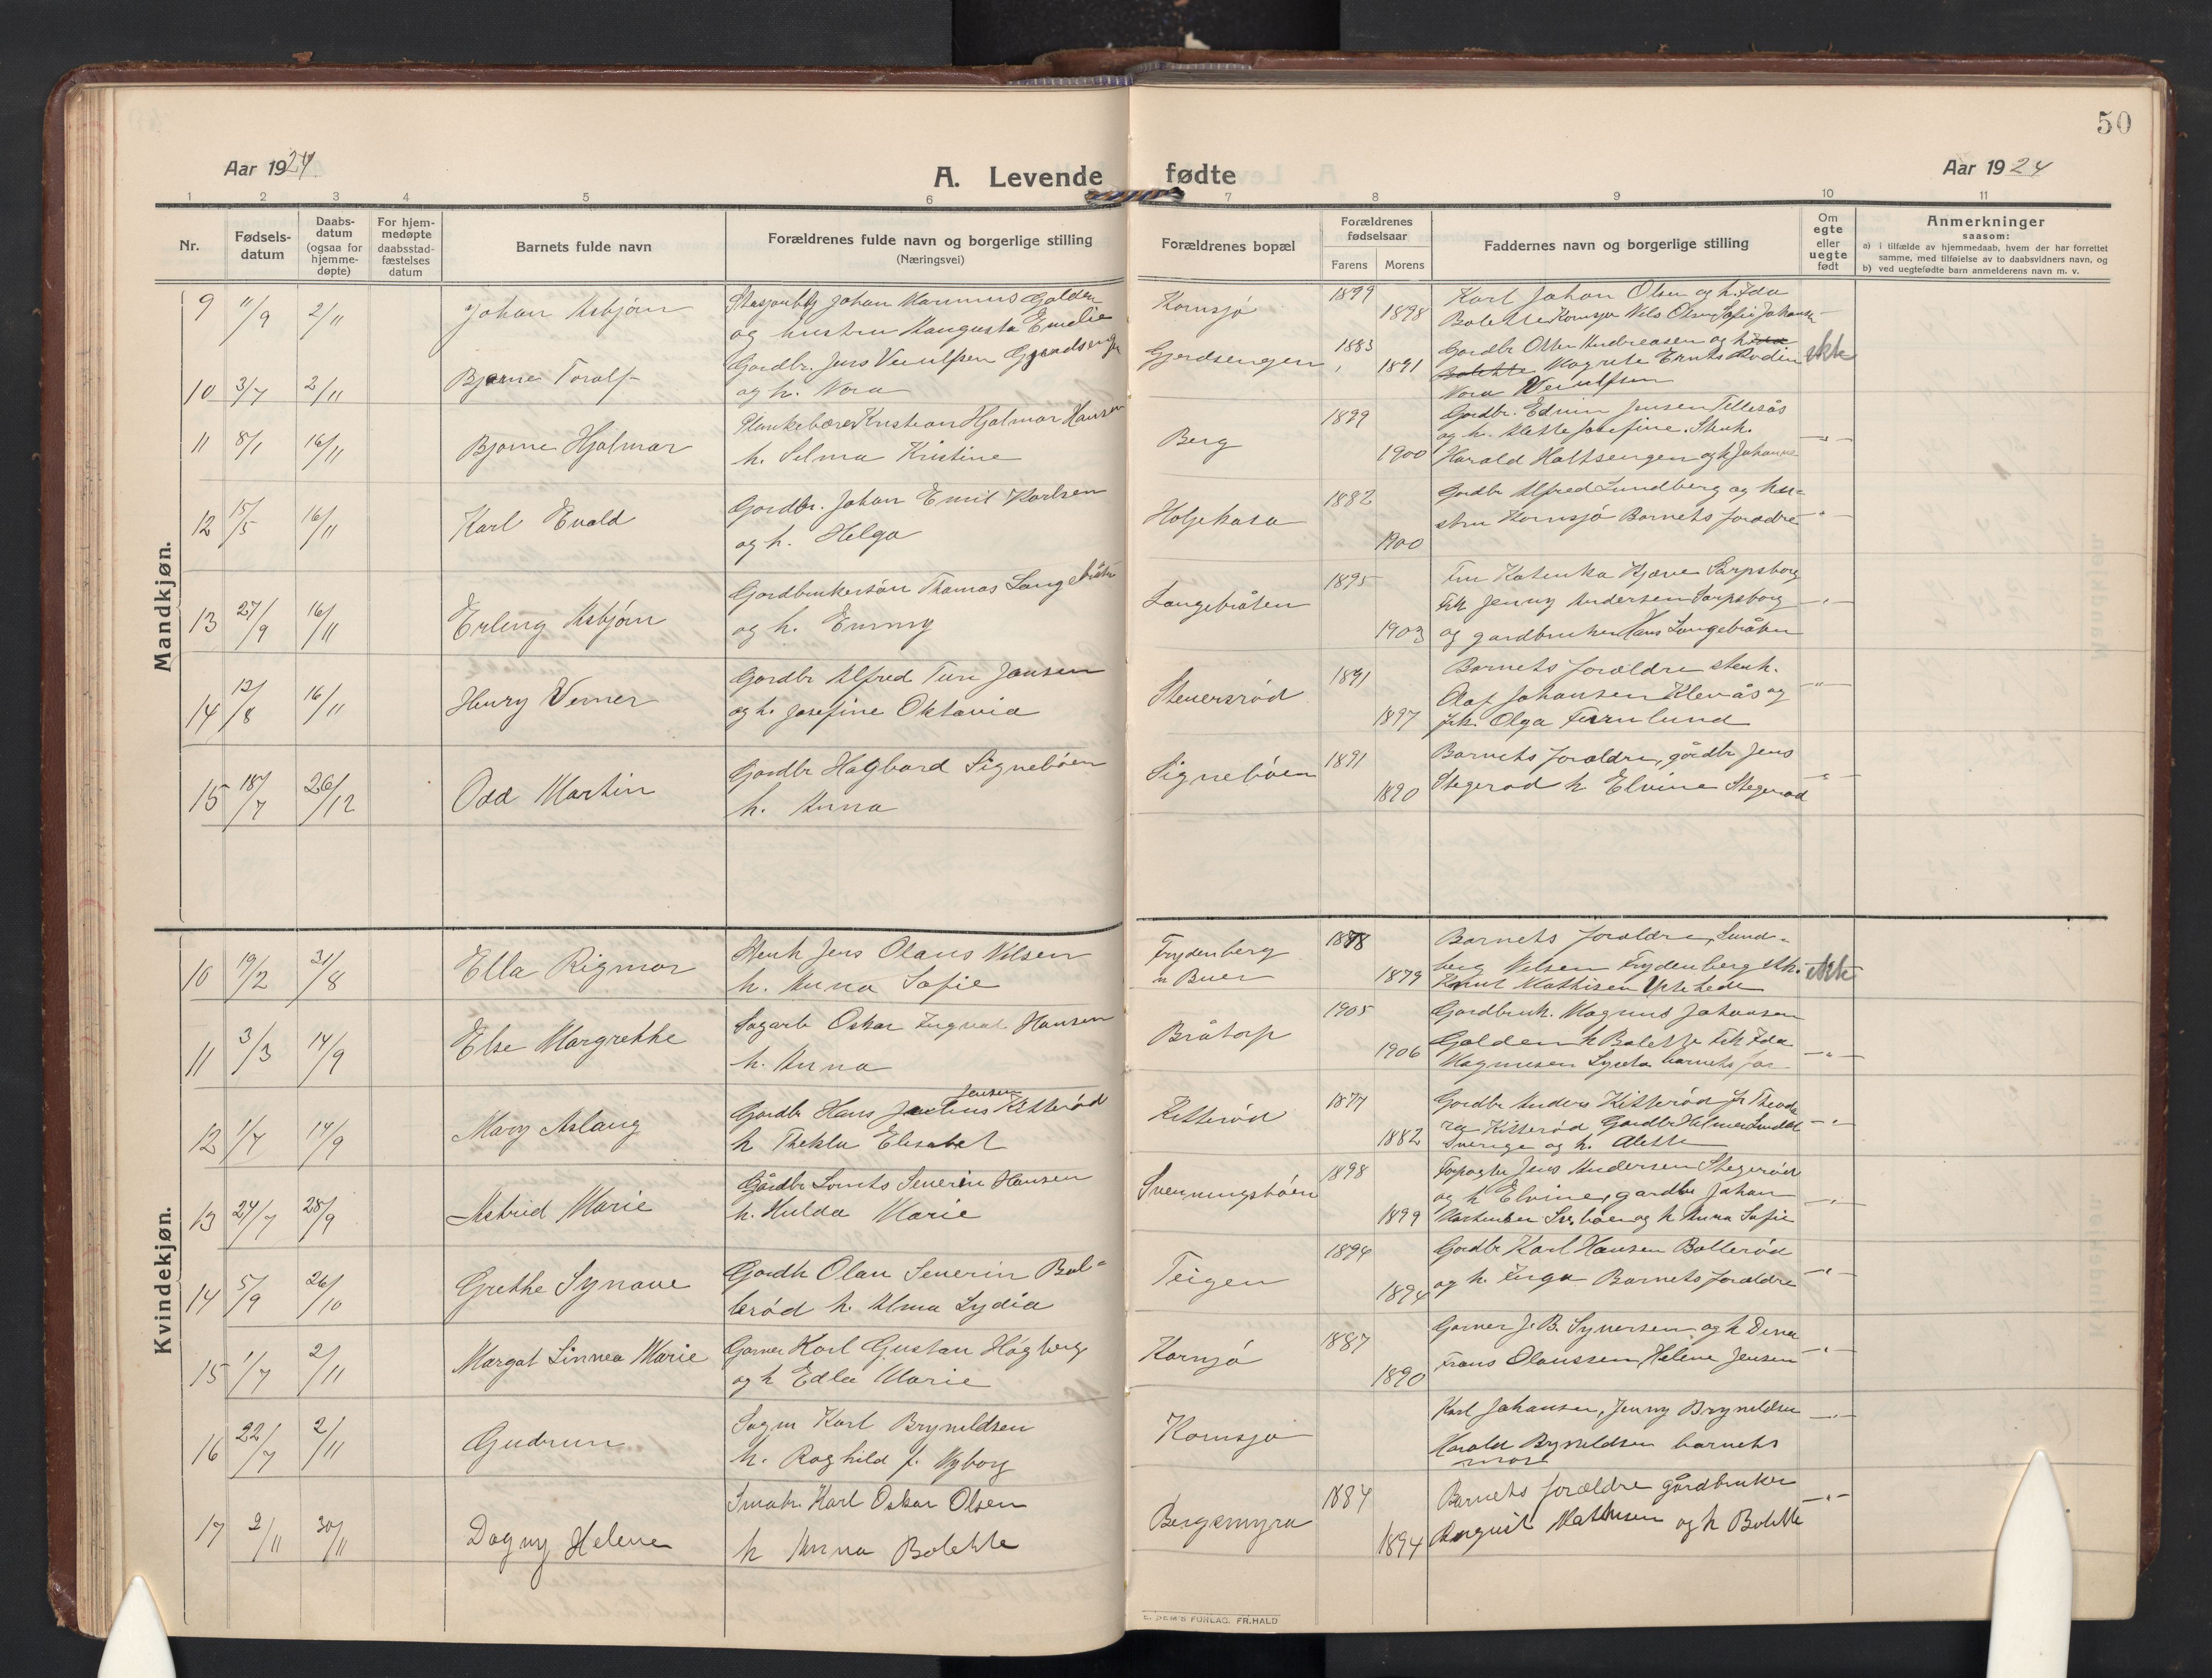 50
Aar 1924
A. Levende fødte
Aar 1924
1 2 3 4 5 6 7 8 9 10 11
Nr.
Fødsels-
datum
Daabs-
datum
(ogsaa for
hjemme-
døpte)
For hjem-
medøpte
daabsstad-
fæstelses
datum
Barnets fulde navn
Forældrenes fulde navn og borgerlige stilling
(Næringsvei)
Forældrenes bopæl
Forældrenes
fødselsaar
Farens Morens
Faddernes navn og borgerlige stilling
Om
egte
eller
uegte
født
Anmerkninger
saasom:
a) i tilfælde av hjemmedaab, hvem der har forrettet
samme, med tilføielse av to daabsvidners navn, og
b) ved uegtefødte barn anmelderens navn m. v.
Mandkjøn.
9 11/9 2/11 Johan Asbjørn
Johan Marinus Golden
og hustru Augusta Emelie
Kornsjø 1899 1898
Karl Johan Olsen og h. Ida
Bolette Kornsjø Nils Olsen Sofie Johansen
10 3/7 2/11 Bjarne Toralf
Gordbr. Jens Veiulfsen Gjerdsengen
og h. Nora
Gjerdsengen, 1883 1891
Gordbr Otter Andreasen og h. Ida
Bolette Magrete Ernts Bodin ekte
Nora Veiulfsen
11 8/1 16/11 Bjarne Hjalmar
Plankebærer Kristian Hjalmar Hansen
h. Selma Kristine
Berg 1899 1900
Gordbr. Edvin Jensen Tellesås
og h. Alette Josefine. Stenh.
Harald Holtsengen og h Johanne —"—
12 15/5 16/11 Karl Evald
Gordbr. Johan Emil Karlsen
og h. Helga
Holjekasa 1882 1900
Gordbr Alfred Lundberg og hu-
stru Kornsjø Barnets forældre —"—
13 27/9 16/11 Erling Asbjørn
Gordbrukersøn Thomas Langebråten
og h. Emmy
Langebråten 1895 1903
Fru Katinka Kjærre Sarpsborg
Frk Jenny Andersen Sarpsborg —"—
og gardbruker Hans Langebråten
14 12/8 16/11 Henry Verner
Gordbr Alfred Ture Jansen
og h. Josefine Oktavia
Steversrød 1891 1897
Barnets forældre stenh.
Olaf Johansen Klevås og —"—
frk. Olga Furnlund
15 18/7 26/12 Odd Martin
Gordbr Hagbard Signebøen
h. Anna
Signebøen 1891 1890
Barnets forældre, gårdbr Jens
Stegerød h Elvine Stegerød —"—
Kvindekjøn.
10 19/2 31/8 Ella Rigmor
Stenh Jens Olaus Nilsen
h. Anna Sofie
Frydenberg
u Buer 1878 1879
Barnets forældre, Lund-
berg Nilsen Frydenberg stk. ekte
Knut Mathisen
11 3/3 14/9 Else Margrethe
Sagarb Oskar Ingvat Hansen
h. Anna
Bråtorp 1905 1906
Gordbruk. Magnus Johansen
Golden h Bolette Frk Ida
Magnusen Lysda barnets far —"—
12 1/7 14/9 Mary Aslaug
Jensen
Gordbr Hans Julius Kitterød
h Thekla Elisabet
Kitterød 1877 1882
Gordbr Anders Kitterød fr Theodo
ra Kitterød Gordbr Hilmer —"—
Sverige og h. Alette
13 24/7 28/9 Astrid Marie
Gårdbr Lorents Severin Hansen
h. Hulda Marie
Svenningsbøen 1898 1899
Forpagter Jens Andersen Stegerød
og h Elvine, gardbr Johan —"—
og h Anna Sofie
14 5/9 26/10 Grethe Synøve
Gordb Olav Severin Bol-
lerød h. Alma Lydia
Teigen 1894 1894
Gordbr Karl Hansen Bollerød
og h. Inga Barnets forældre —"—
15 1/7 2/11 Margot Linnea Marie
Garver Karl Gustav Høgberg
og h Edla Marie
Kornsjø 1887 1890
Garver J. B. Syversen og h Dina
Frans Olaussen, Helene Jensen —"—
16 22/7 2/11 Gudrun
Sagm Karl Bryneldsen
h. Raghild f. Nyborg
Kornsjø
Karl Johansen, Jenny Bryneldsen —"—
Harald Bryneldsen barnets
mor
17 2/11 30/11 Dagny Helene
Smabr. Karl Oskar Olsen
h Anna Bolette
Bergsmyra 1884 1894
Barnets forældre gårdbruker
August Mathisen og h Bolette —"—
E. SEM'S FORLAG. FR.HALD